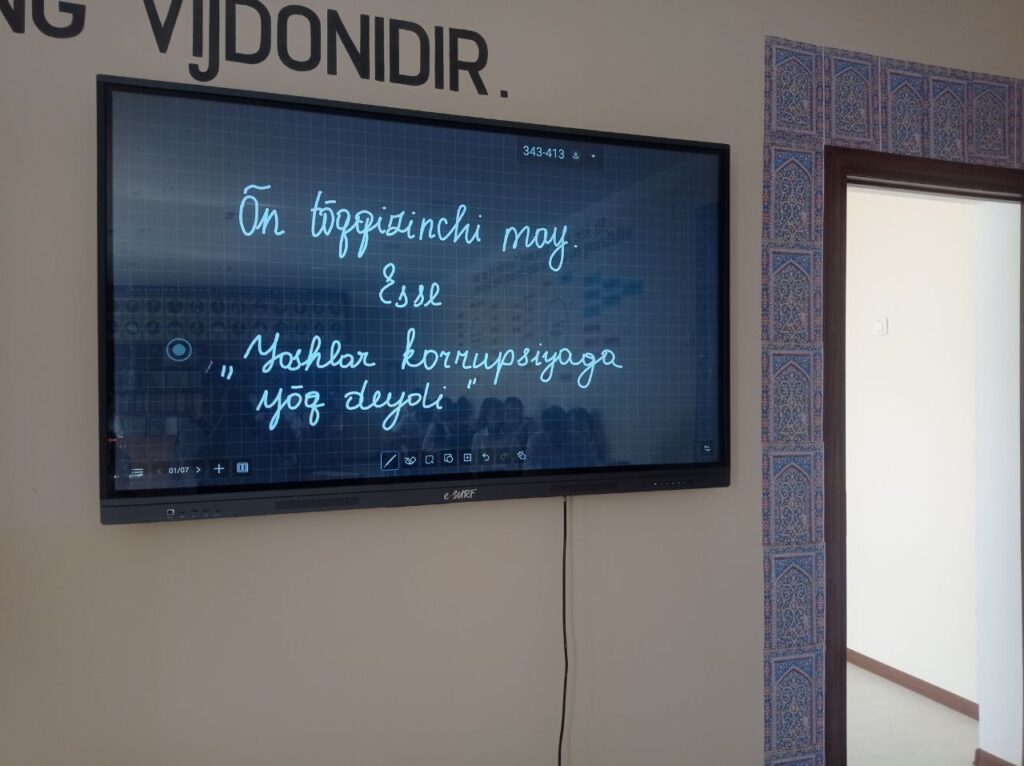 NG VIJDONIDIR.
343-413
Ōn tōqqizinchi may.
Esse
„Yoshlar korrupsiyaga
yōq deydi"
01/07
e-SURF